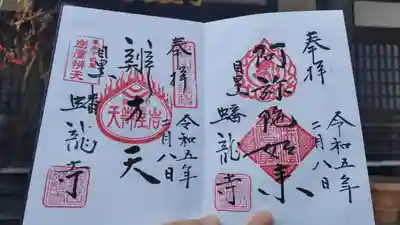 奉拝
阿弥陀如来
目黒 蟠龍寺
令和五年
二月八日
奉拝
辨才天
岩屋辨天
目黒 蟠龍寺
令和五年
二月八日